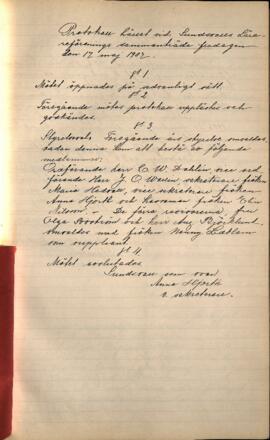 Protokoll hållet vid Sundsvalls Lära-
reförenings sammanträde fredagen
den 17 maj 1907.
§ 1
Mötet öppnades på sedvanligt sätt.
§ 2
Föregående mötes protokoll upplästes och
godkändes.
§ 3
Föregående års styrelse omvaldes,
kom att bestå av följande
medlemmar:
Ordförande herr C. W. Dahlin, vice ord-
förande herr J. O. sekreterare fröken
Maria vice sekreterare fröken
Anna Hjorth och kassaman fröken
Nilsson. — De förra revisorerna, fru
Olga och herr Aug. Björklund
omvaldes med fröken
som suppleant.
§ 4
Mötet avslutades.
Sundsvall som ovan
Anna Hjorth
v. sekreterare.